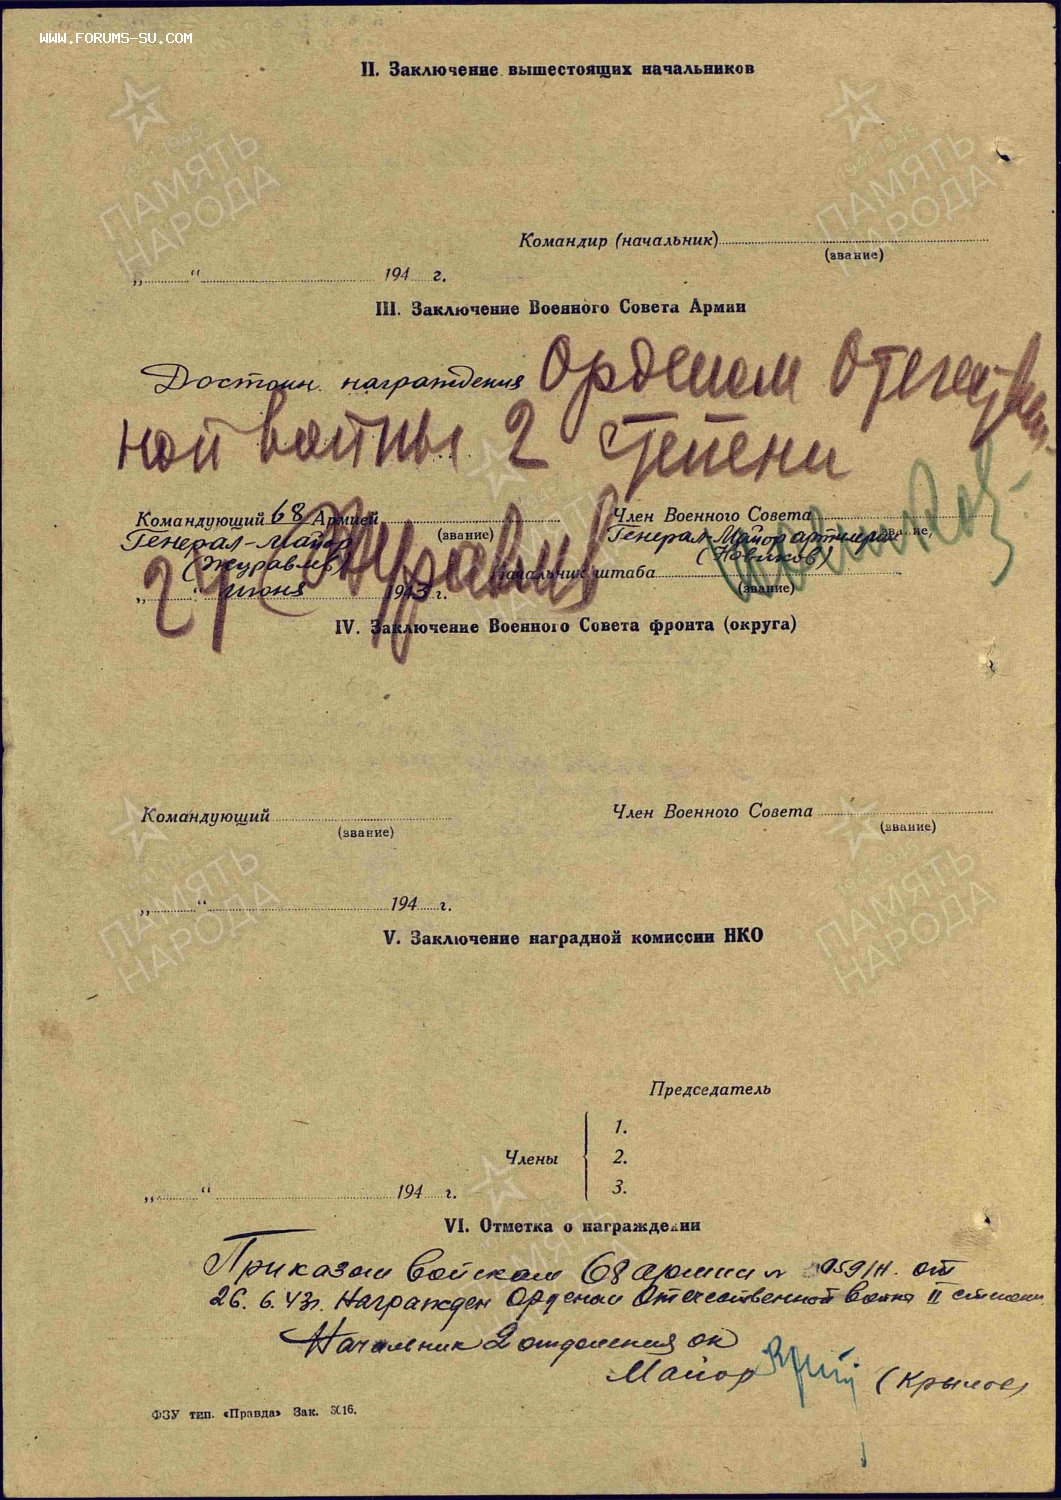 WWW.FORUMS-SU.COM
II. Заключение вышестоящих начальников
1941 1945
ПАМЯТЬ НАРОДА
1941 1945
ПАМЯТЬ НАРОДА
Командир (начальник)
(звание)
„ “ 194 г.
III. Заключение Военного Совета Армии
Достоин награждения Орденом Отечествен
ной войны 2 степени
Командующий 68 Армией
(звание)
Член Военного Совета
звание,
Генерал-Майор
(Журавлев)
Генерал-Майор артиллерии
(Новиков)
Начальник штаба
(звание)
„24“ июня 1943 г.
Журавлев
IV. Заключение Военного Совета фронта (округа)
Командующий
(звание)
Член Военного Совета
(звание)
ПАМЯТЬ НАРОДА
ПАМЯТЬ НАРОДА
„ “ 194 г.
V. Заключение наградной комиссии НКО
Председатель
Члены
1.
2.
3.
„ “ 194 г.
VI. Отметка о награждении
Приказом войскам 68 армии № 059/Н. от
26. 6. 43г. Награжден Орденом Отечественной войны II степени
Начальник 2 отделения ОК
Майор (Крылов)
ФЗУ тип. «Правда» Зак. 3016.